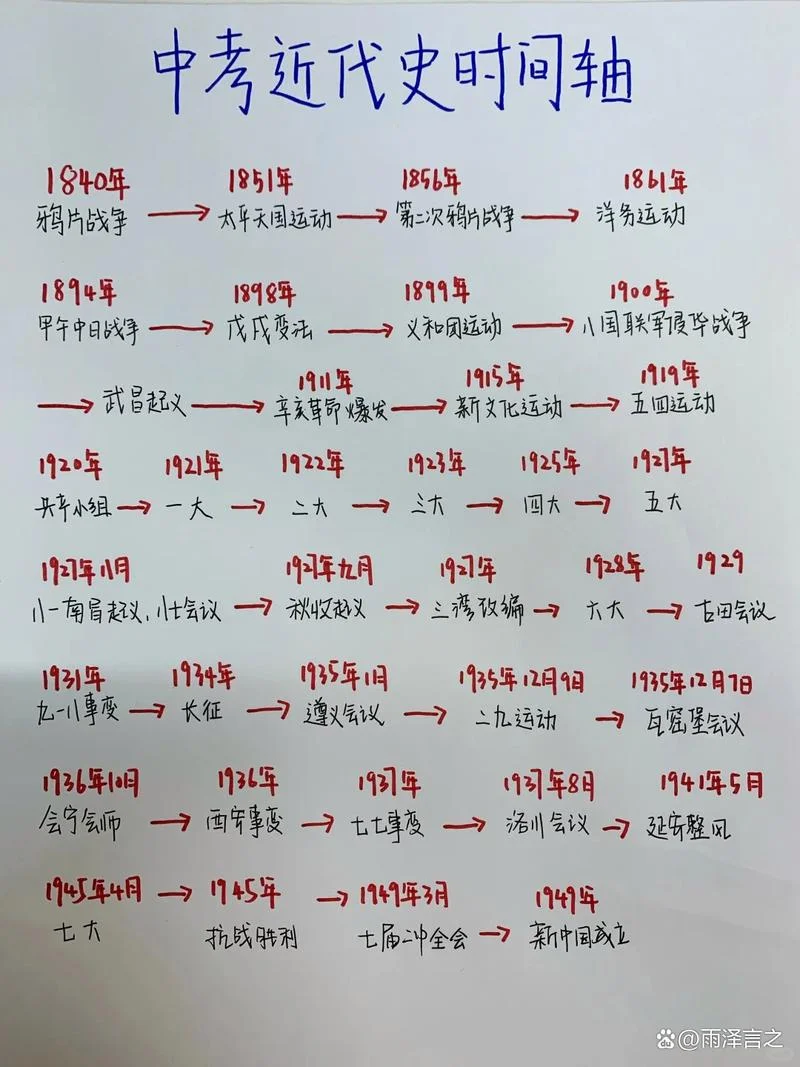 中考近代史时间轴
1840年 1851年 1856年 1861年
鸦片战争 → 太平天国运动 → 第二次鸦片战争 → 洋务运动
1894年 1898年 1899年 1900年
甲午中日战争 → 戊戌变法 → 义和团运动 → 八国联军侵华战争
1911年 1915年 1919年
→ 武昌起义 → 辛亥革命爆发 → 新文化运动 → 五四运动
1920年 1921年 1922年 1923年 1925年 1927年
共产小组 → 一大 → 二大 → 三大 → 四大 → 五大
1927年八月 1927年九月 1927年 1928年 1929
八一南昌起议、八七会议 → 秋收起议 → 三湾改编 → 六大 → 古田会议
1931年 1934年 1935年1月 1935年12月9日 1935年12月7日
九一八事变 → 长征 → 遵义会议 → 二九运动 → 瓦窑堡会议
1936年10月 1936年 1937年 1937年8月 1941年5月
会宁会师 → 西安事变 → 七七事变 → 洛川会议 → 延安整风
1945年4月 → 1945年 → 1949年3月 1949年
七大 抗战胜利 七届二中全会 → 新中国成立
Bai du @雨泽言之